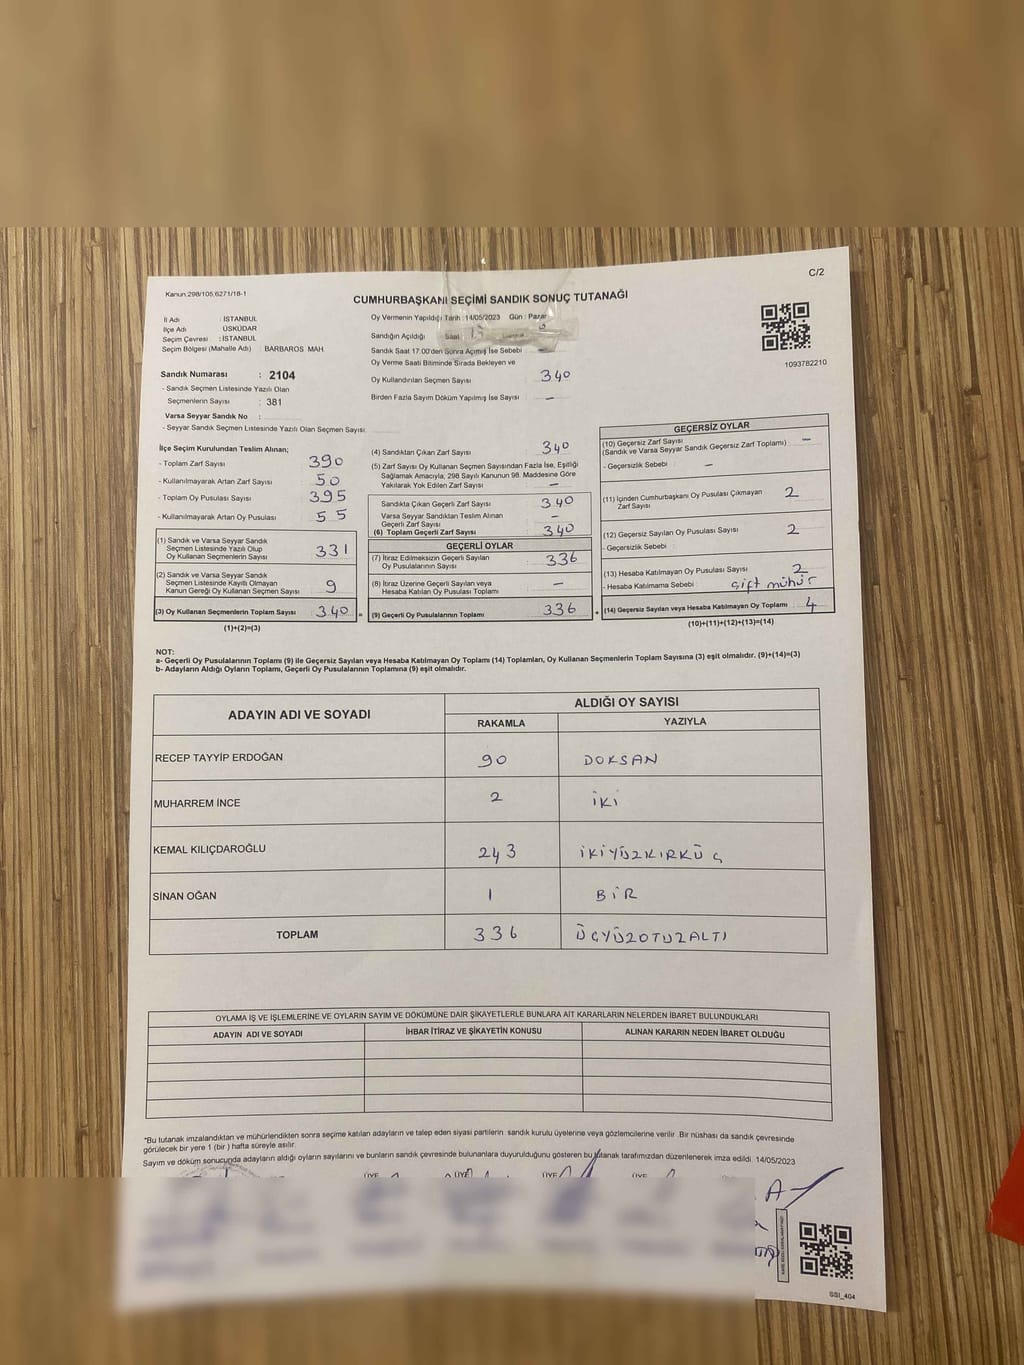 C/2
Kanun.298/105,6271/18-1
CUMHURBAŞKANI SEÇİMİ SANDIK SONUÇ TUTANAĞI
İl Adı : İSTANBUL
İlçe Adı : ÜSKÜDAR
Seçim Çevresi : İSTANBUL
Seçim Bölgesi (Mahalle Adı) : BARBAROS MAH.
Oy Vermenin Yapıldığı Tarih :14/05/2023 Gün : Pazar
Sandığın Açıldığı Saat :
Sandık Saat 17:00'den Sonra Açımış İse Sebebi
Oy Verme Saati Bitiminde Sırada Bekleyen ve
Oy Kullandırılan Seçmen Sayısı 340
Birden Fazla Sayım Döküm Yapılmış İse Sayısı -
1093782210
Sandık Numarası : 2104
- Sandık Seçmen Listesinde Yazılı Olan
Seçmenlerin Sayısı : 381
Varsa Seyyar Sandık No :
- Seyyar Sandık Seçmen Listesinde Yazılı Olan Seçmen Sayısı:
İlçe Seçim Kurulundan Teslim Alınan;
- Toplam Zarf Sayısı 390
- Kullanılmayarak Artan Zarf Sayısı 50
- Toplam Oy Pusulası Sayısı 395
- Kullanılmayarak Artan Oy Pusulası 55
(1) Sandık ve Varsa Seyyar Sandık
Seçmen Listesinde Yazılı Olup
Oy Kullanan Seçmenlerin Sayısı 331
(2) Sandık ve Varsa Seyyar Sandık
Seçmen Listesinde Kayıtlı Olmayan
Kanun Gereği Oy Kullanan Seçmen Sayısı 9
(3) Oy Kullanan Seçmenlerin Toplam Sayısı 340 =
(1)+(2)=(3)
(4) Sandıktan Çıkan Zarf Sayısı 340
(5) Zarf Sayısı Oy Kullanan Seçmen Sayısından Fazla İse, Eşitliği
Sağlamak Amacıyla, 298 Sayılı Kanunun 98. Maddesine Göre
Yakılarak Yok Edilen Zarf Sayısı -
Sandıkta Çıkan Geçerli Zarf Sayısı 340
Varsa Seyyar Sandıktan Teslim Alınan
Geçerli Zarf Sayısı -
(6) Toplam Geçerli Zarf Sayısı 340
GEÇERLİ OYLAR
(7) İtiraz Edilmeksizin Geçerli Sayılan
Oy Pusulalarının Sayısı 336
(8) İtiraz Üzerine Geçerli Sayılan veya
Hesaba Katılan Oy Pusulası Toplamı -
(9) Geçerli Oy Pusulalarının Toplamı 336 +
GEÇERSİZ OYLAR
(10) Geçersiz Zarf Sayısı
(Sandık ve Varsa Seyyar Sandık Geçersiz Zarf Toplamı) -
- Geçersizlik Sebebi : -
(11) İçinden Cumhurbaşkanı Oy Pusulası Çıkmayan
Zarf Sayısı 2
(12) Geçersiz Sayılan Oy Pusulası Sayısı 2
- Geçersizlik Sebebi :
(13) Hesaba Katılmayan Oy Pusulası Sayısı 2
- Hesaba Katılmama Sebebi : çift mühür
(14) Geçersiz Sayılan veya Hesaba Katılmayan Oy Toplamı 4
(10)+(11)+(12)+(13)=(14)
NOT:
a- Geçerli Oy Pusulalarının Toplamı (9) ile Geçersiz Sayılan veya Hesaba Katılmayan Oy Toplamı (14) Toplamları, Oy Kullanan Seçmenlerin Toplam Sayısına (3) eşit olmalıdır. (9)+(14)=(3)
b- Adayların Aldığı Oyların Toplamı, Geçerli Oy Pusulalarının Toplamına (9) eşit olmalıdır.
ADAYIN ADI VE SOYADI ALDIĞI OY SAYISI
RAKAMLA YAZIYLA
RECEP TAYYİP ERDOĞAN 90 DOKSAN
MUHARREM İNCE 2 İKİ
KEMAL KILIÇDAROĞLU 243 İKİYÜZKIRKÜÇ
SİNAN OĞAN 1 BİR
TOPLAM 336 ÜÇYÜZOTUZALTI
OYLAMA İŞ VE İŞLEMLERİNE VE OYLARIN SAYIM VE DÖKÜMÜNE DAİR ŞİKAYETLERLE BUNLARA AİT KARARLARIN NELERDEN İBARET BULUNDUKLARI
ADAYIN ADI VE SOYADI İHBAR İTİRAZ VE ŞİKAYETİN KONUSU ALINAN KARARIN NEDEN İBARET OLDUĞU
*Bu tutanak imzalandıktan ve mühürlendikten sonra seçime katılan adayların ve talep eden siyasi partilerin sandık kurulu üyelerine veya gözlemcilerine verilir .Bir nüshası da sandık çevresinde
görülecek bir yere 1 (bir ) hafta süreyle asılır.
Sayım ve döküm sonucunda adayların aldığı oyların sayılarını ve bunların sandık çevresinde bulunanlara duyurulduğunu gösteren bu tutanak tarafımızdan düzenlenerek imza edildi. 14/05/2023
ÜYE ÜYE ÜYE ÜYE
SSI_404